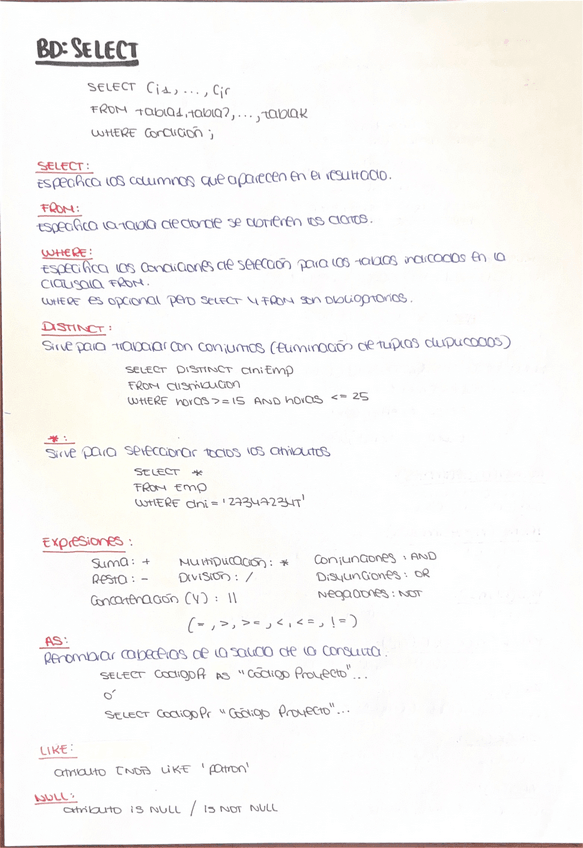 BD: SELECT
SELECT Ci1, ..., Cir
FROM tabla1, tabla2, ..., tablaK
WHERE condición;
SELECT:
Especifica las columnas que aparecen en el resultado.
FROM:
Especifica la tabla de donde se obtienen los datos.
WHERE:
Especifica las condiciones de selección para las tablas indicadas en la
cláusula FROM.
WHERE es opcional pero SELECT y FROM son obligatorios.
DISTINCT:
Sirve para trabajar con conjuntos (Eliminación de tuplas duplicadas)
SELECT DISTINCT dniEmp
FROM distribucion
WHERE horas >= 15 AND horas <= 25
*:
Sirve para seleccionar todos los atributos
SELECT *
FROM Emp
WHERE dni = '27347234T'
Expresiones:
Suma: + Multiplicación: * Conjunciones: AND
Resta: - División: / Disyunciones: OR
Concatenación (V): || Negaciones: NOT
(=, >, >=, <, <=, !=)
AS:
Renombrar cabeceras de la salida de la consulta.
SELECT CodigoPr AS "Código Proyecto"...
o'
SELECT CodigoPr "Código Proyecto"...
LIKE:
atributo [NOT] LIKE 'patron'
NULL:
atributo IS NULL / IS NOT NULL